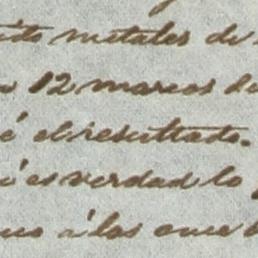 metales de
12 marcos de
é el resultado.
es verdad lo
á las once